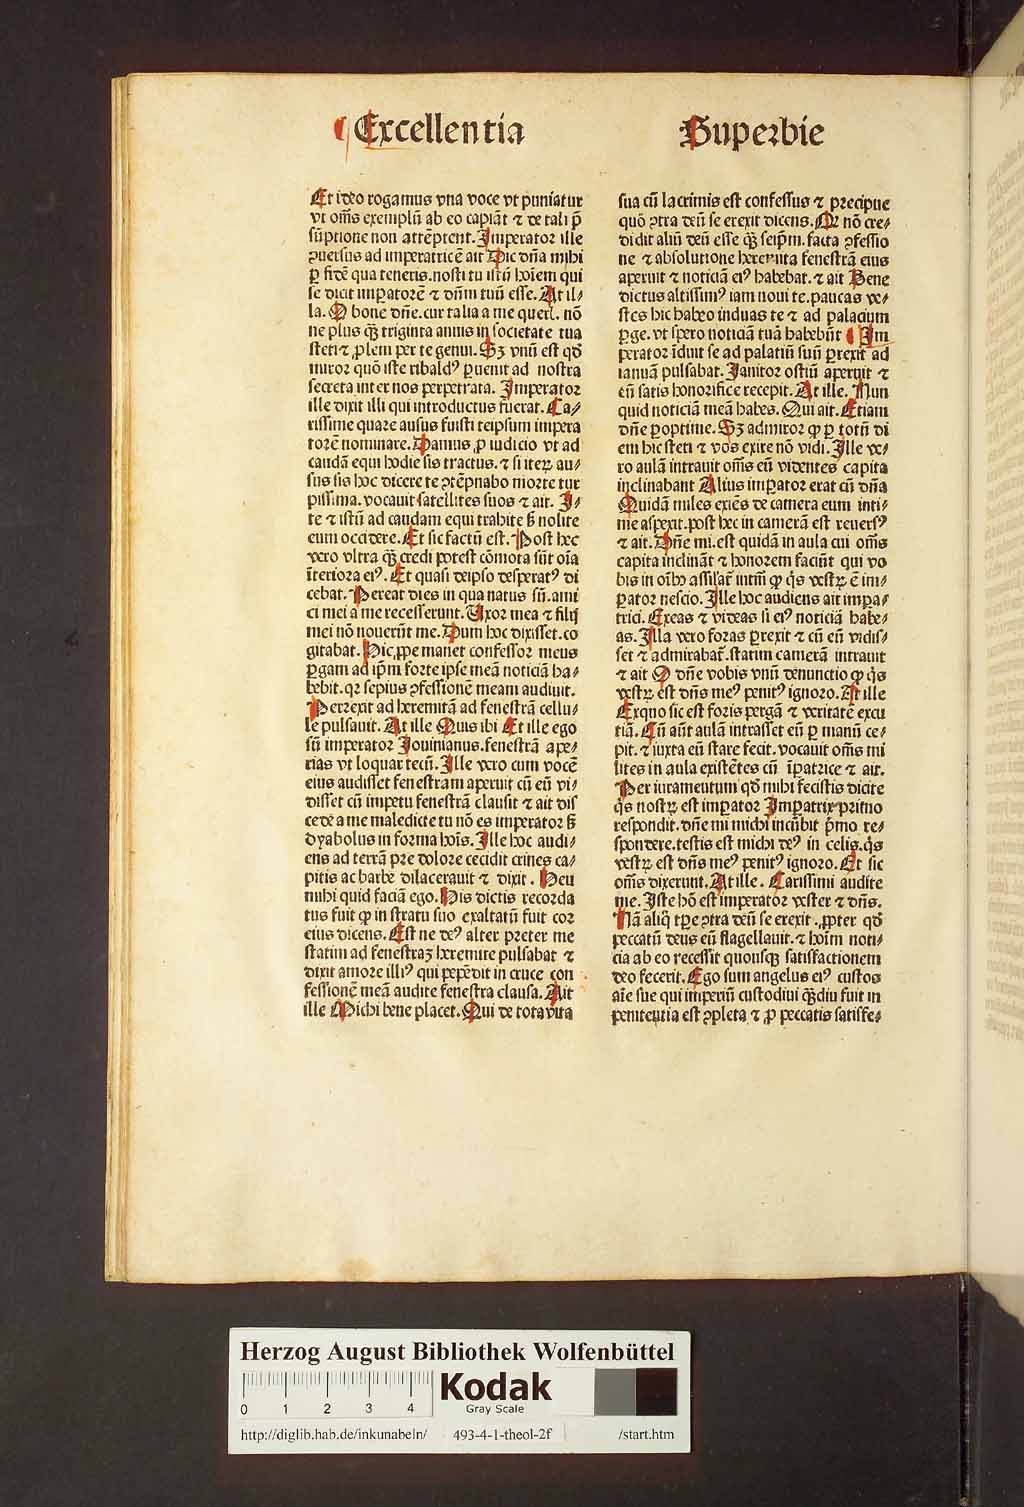 ¶ Excellentia
Superbie
Et ideo rogamus vna voce vt puniatur
vt om̄s exemplū ab eo capiāt ⁊ de tali p̄
sūptione non attēptent. Imperator ille
ꝯuersus ad imperatricē ait Dic dn̄a mihi
ꝑ fidē qua teneris. nosti tu istū hoīem qui
se dicit imꝑatorē ⁊ dn̄m tuū esse. At il⸗
la. O bone dn̄e. cur talia a me queri. nō
ne plus qȝ triginta annis in societate tua
steti ⁊ ꝓlem per te genui. Sȝ vnū est qđ
miror quō iste ribaldꝰ ꝑuenit ad nostra
secreta inter nos perpetrata. Imperator
ille dixit illi qui introductus fuerat. Ca⸗
rissime quare ausus fuisti teipsum impera
torē nominare. Damus ꝓ iudicio vt ad
caudā equi hodie sis tractus. ⁊ si iteꝝ au⸗
sus sis hoc dicere te ꝯtēpnabo morte tur
pissima. vocauit satellites suos ⁊ ait. I⸗
te ⁊ istū ad caudam equi trahite ſꝫ nolite
eum occidere. Et sic factū est. Post hec
vero vltra qȝ credi potest cōmota sūt oīa
īteriora eiꝰ. Et quasi deipso desperatꝰ di
cebat. Pereat dies in qua natus sū. ami
ci mei a me recesserunt. Uxor mea ⁊ filij
mei nō nouerūt me. Dum hoc dixisset. co
gitabat. Hic ꝓpe manet confessor meus
ꝑgam ad ip̄m forte ipse meā noticiā ha⸗
bebit. qꝛ sepius ꝯfessionē meam audiuit.
Perrexit ad heremitā ad fenestrā cellu⸗
le pulsauit. At ille Quis ibi Et ille ego
sū imperator Jouinianus. fenestrā ape⸗
rias vt loquar tecū. Ille vero cum vocē
eius audisset fenestram aperuit cū eū vi⸗
disset cū impetu fenestrā clausit ⁊ ait dis
cede a me maledicte tu nō es imperator ſꝫ
dyabolus in forma hoīs. Ille hoc audi⸗
ens ad terrā pre dolore cecidit crines ca⸗
pitis ac barbe dilacerauit ⁊ dixit. Heu
mihi quid faciā ego. His dictis recorda
tus fuit ꝙ in stratu suo exaltatū fuit cor
eius dicens. Est ne deꝰ alter preter me
statim ad fenestraȝ heremite pulsabat ⁊
dixit amore illiꝰ qui pepēdit in cruce con
fessionē meā audite fenestra clausa. Ait
ille Michi bene placet. Qui de tota vita
sua cū lacrimis est confessus ⁊ precipue
quō ꝯtra deū se erexit dicens. Qꝛ nō cre⸗
didit aliū deū esse qȝ seip̄m. facta ꝯfessio
ne ⁊ absolutione heremita fenestrā eius
aperuit ⁊ noticiā eiꝰ habebat. ⁊ ait Bene
dictus altissimꝰ iam noui te. paucas ve⸗
stes hic habeo induas te ⁊ ad palacium
ꝑge. vt spero noticiā tuā habebūt ¶ Im
perator īduit se ad palatiū suū ꝑrexit ad
ianuā pulsabat. Janitor ostiū aperuit ⁊
eū satis honorifice recepit. At ille. Nun
quid noticiā meā habes. Qui ait. Etiam
dn̄e ꝑoptime. Sȝ admiror ꝙ ꝑ totū di
em hic steti ⁊ vos exire nō vidi. Ille ve⸗
ro aulā intrauit om̄s eū videntes capita
inclinabant Alius imꝑator erat cū dn̄a
Quidā miles exiēs de camera eum inti⸗
me aspexit. post hec in camerā est reuersꝰ
⁊ ait. Dn̄e mi. est quidā in aula cui om̄s
capita inclināt ⁊ honorem faciūt qui vo
bis in oībꝰ assilat̄ intm̄ ꝙ q̇s vestꝝ ē im⸗
ꝑator nescio. Ille hoc audiens ait imꝑa⸗
trici. Exeas ⁊ videas si eiꝰ noticiā habe⸗
as. Illa vero foras ꝑrexit ⁊ cū eū vidis⸗
set ⁊ admirabat̄. statim camerā intrauit
⁊ ait O dn̄e vobis vnū denunctio ꝙ q̇s
vestꝝ est dn̄s meꝰ penitꝰ ignoro. At ille
Exquo sic est foris pergā ⁊ veritatē excu
tiā. Cū aūt aulā intrasset eū ꝑ manū ce⸗
pit. ⁊ iuxta eū stare fecit. vocauit om̄s mi
lites in aula existētes cū īꝑatrice ⁊ ait.
Per iuramentum qđ mihi fecistis dicite
q̇s nostꝝ est imꝑator Imꝑatrix primo
respondit. dn̄e mi michi incūbit p̄mo re⸗
spondere. testis est michi deꝰ in celis. q̇s
vestꝝ est dn̄s meꝰ penitꝰ ignoro. Et sic
om̄s dixerunt. At ille. Carissimi audite
me. Iste hō est imperator vester ⁊ dn̄s.
Nā aliq̄ tꝑe ꝯtra deū se erexit. ꝓpter qđ
peccatū deus eū flagellauit. ⁊ hoīm noti⸗
cia ab eo recessit quousqȝ satisfactionem
deo fecerit. Ego sum angelus eiꝰ custos
aīe sue qui imperiū custodiui qȝdiu fuit in
penitentia est ꝯpleta ⁊ ꝓ peccatis satisfe⸗
Herzog August Bibliothek Wolfenbüttel
0 1 2 3 4
Kodak
Gray Scale
http://diglib.hab.de/inkunabeln/ 493-4-1-theol-2f /start.htm